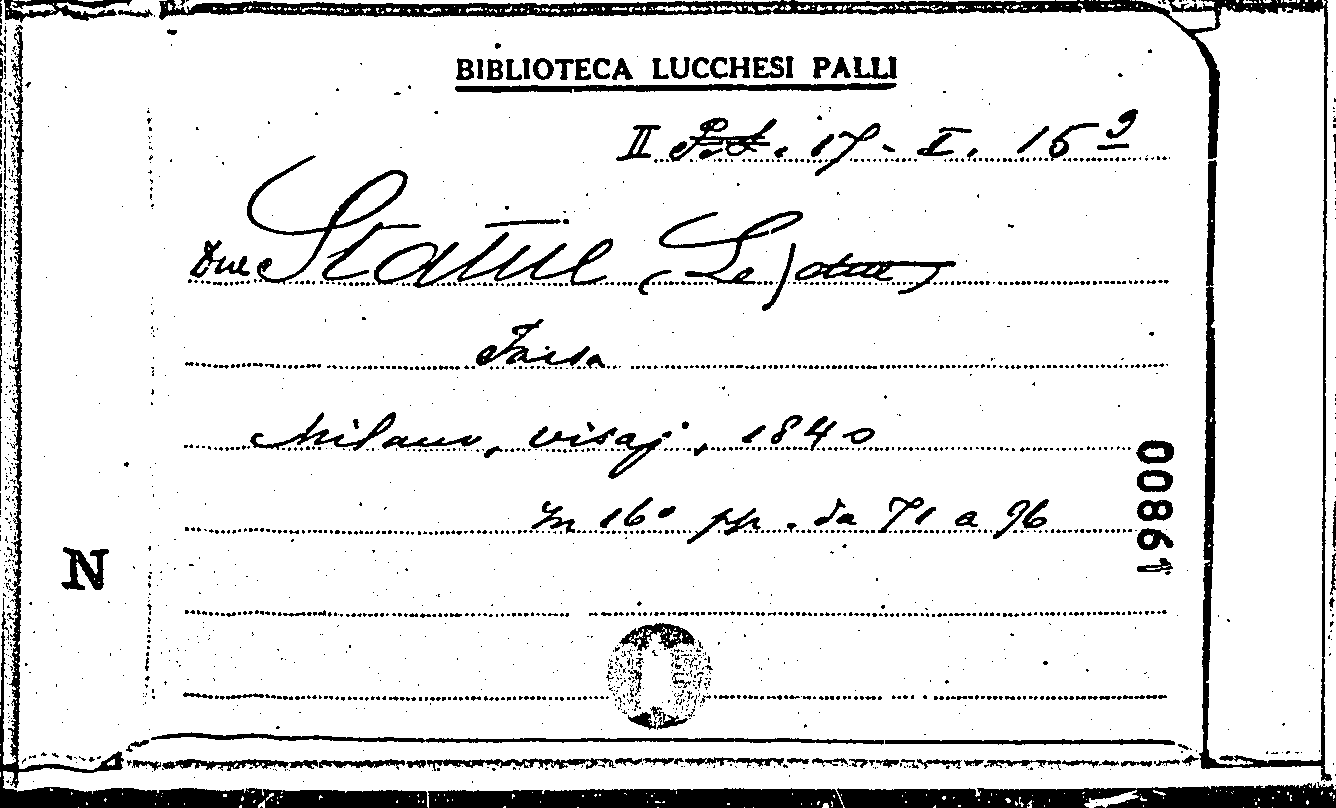 BIBLIOTECA LUCCHESI PALLI
II P.t. 17 - I. 16 9
Due Statue (Le) due
Farsa
Milano, Visaj, 1840
In 16° pp. da 71 a 96
N
00861